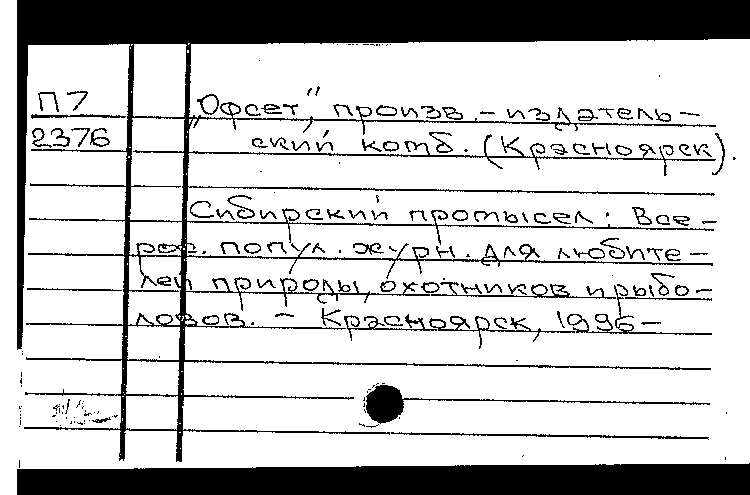 П7
2376
„Офсет“, произв.-издатель-
ский комб. (Красноярск).
Сибирский промысел: Все-
рос. попул. журн. для любите-
лей природы, охотников и рыбо-
ловов. - Красноярск, 1996-